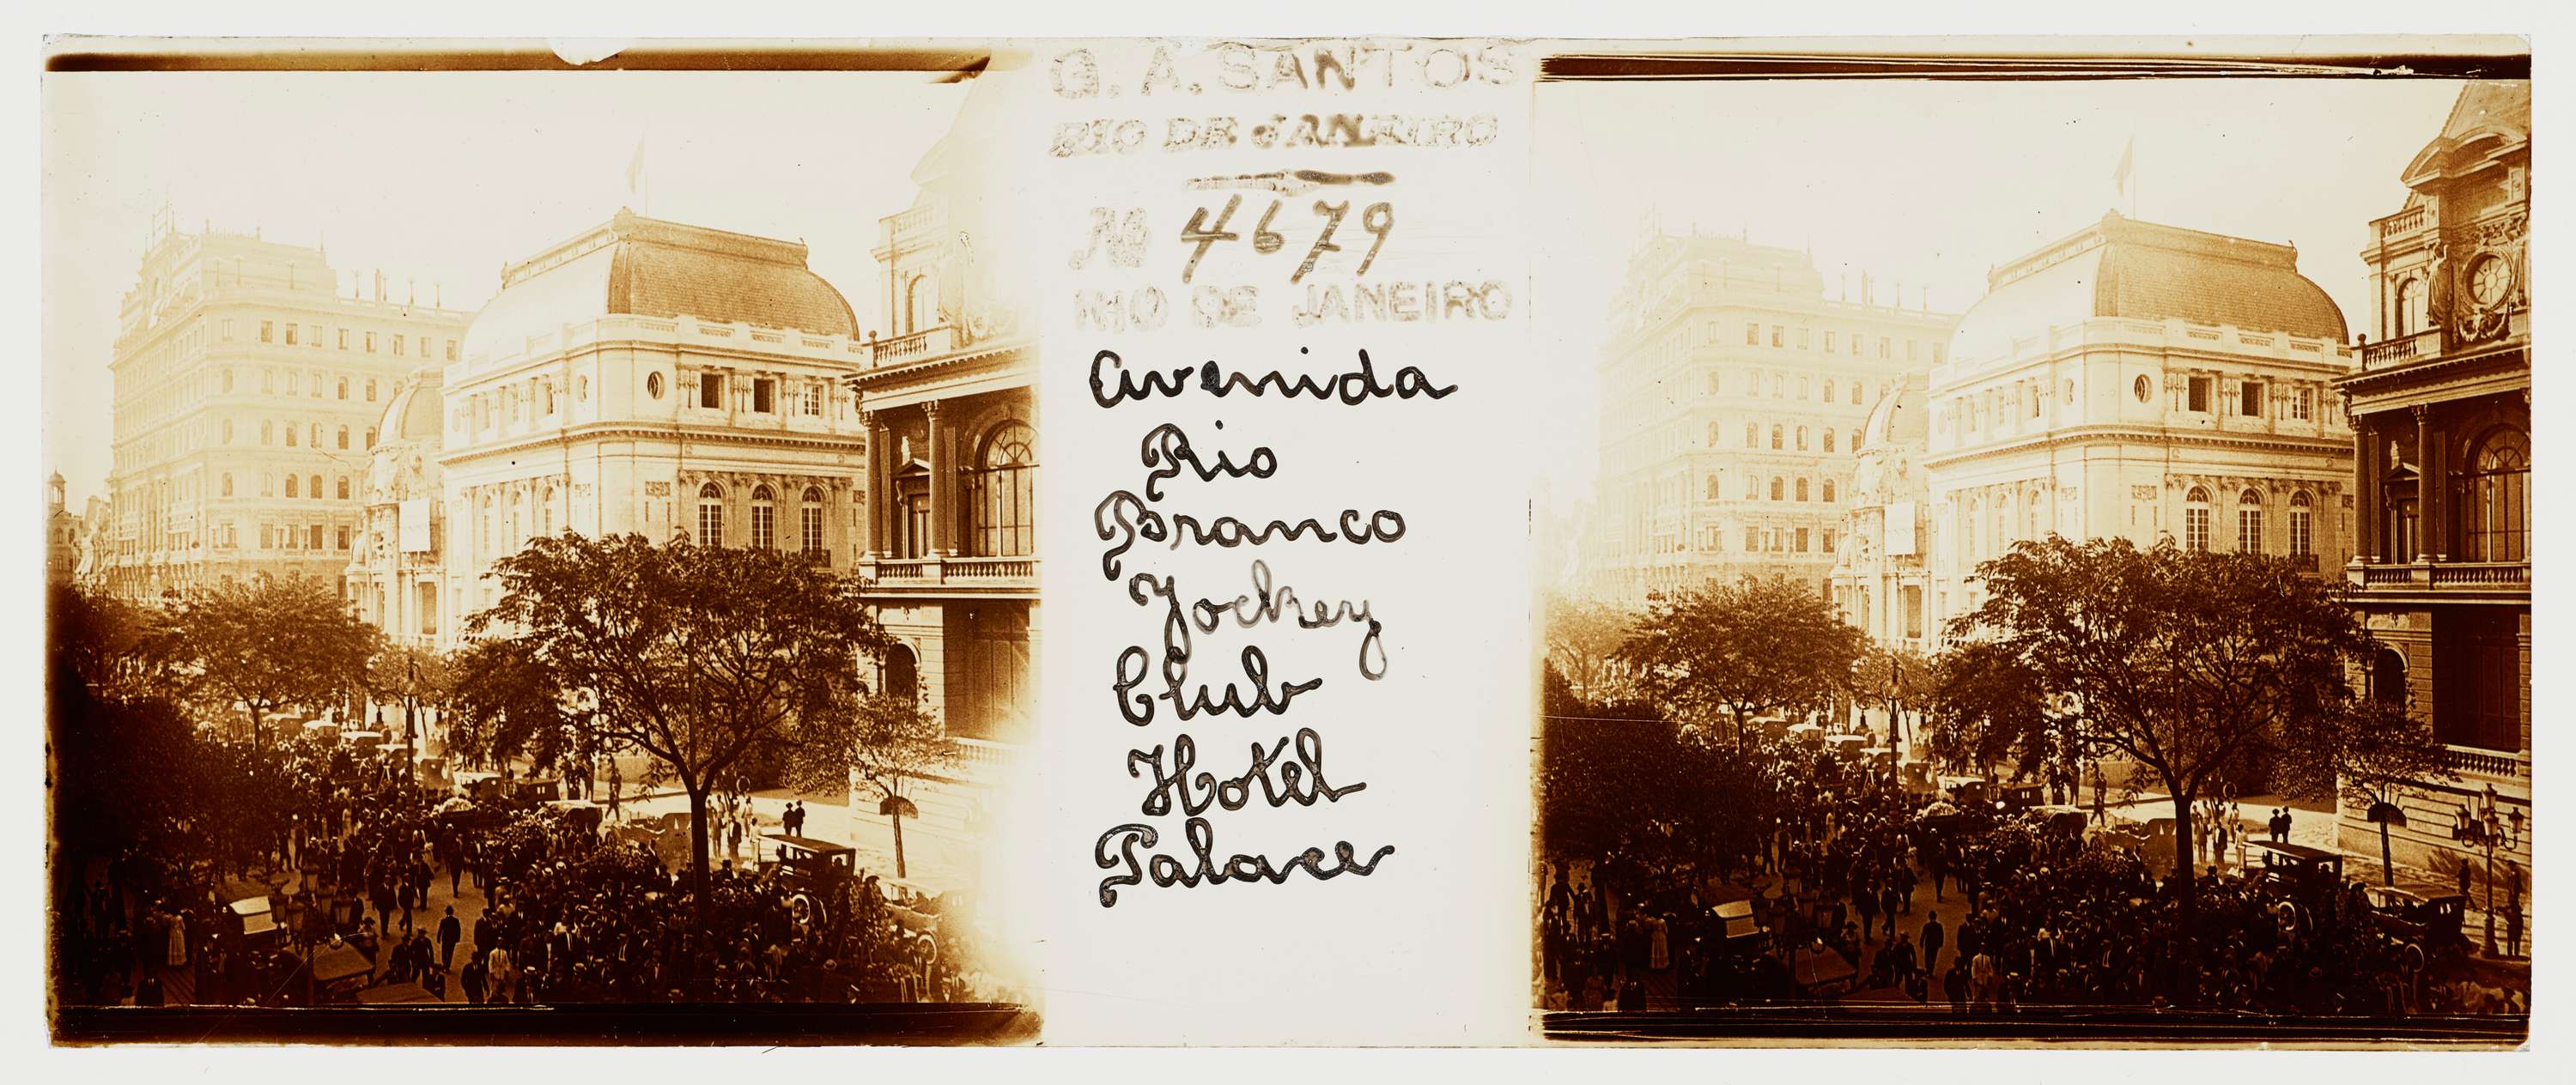 G. A. SANTOS
RIO DE JANEIRO
No 4679
RIO DE JANEIRO
Avenida
Rio
Branco
Jockey
Club
Hotel
Palace